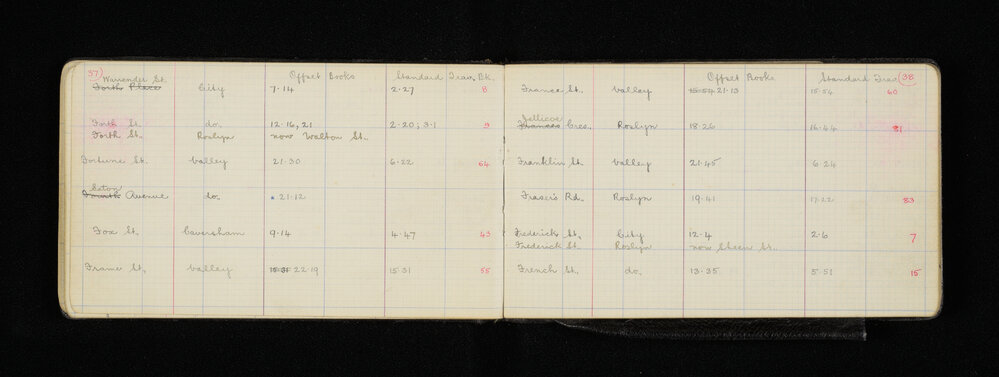 37 Offset Books Standard Trav. Bk.
Warrender St.
Forth Place City 7·14 2·27 8
Forth St. do. 12·16, 21 2·20; 3·1 9
Forth St. Roslyn now Walton St.
Fortune St. Valley 21·30 6·22 64
Seton
Fourth Avenue do. 21·12
Fox St. Caversham 9·14 4·47 43
Frame St. Valley 15·31 22·19 15·31 55
Offset Books Standard Trav 38
France St. Valley 15·54 21·13 15·54 60
Jellicoe
Frances Cres. Roslyn 18·26 16·44 81
Franklin St. Valley 21·45 6·24
Fraser's Rd. Roslyn 19·41 17·22 83
Frederick St. City 12·4 2·6 7
Frederick St. Roslyn now Skeen St.
French St. do. 13·35 5·51 15